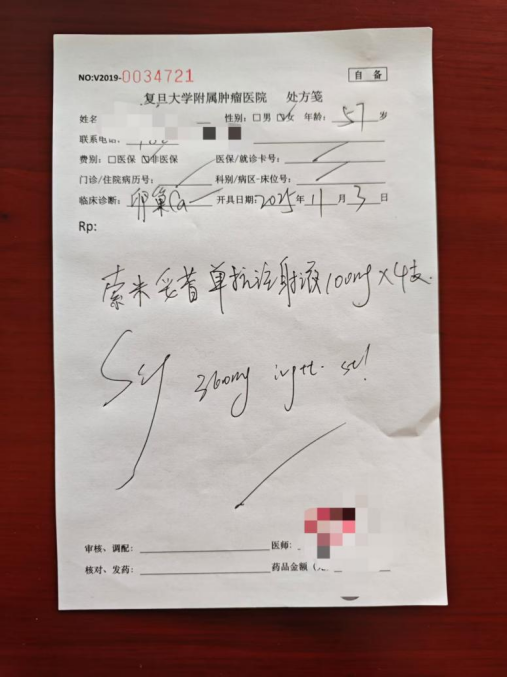 NO:V2019-0034721
自 备
复旦大学附属肿瘤医院 处方笺
姓名 性别: □男 □女 年龄: 57 岁
联系电话:
费别: □医保 □非医保 医保/就诊卡号:
门诊/住院病历号: 科别/病区-床位号:
临床诊断: 卵巢Ca 开具日期: 2025 年 11 月 3 日
Rp:
索米妥昔单抗注射液100mg×4支.
Sig 360mg ivgtt. st!
审核、调配: 医师:
核对、发药: 药品金额